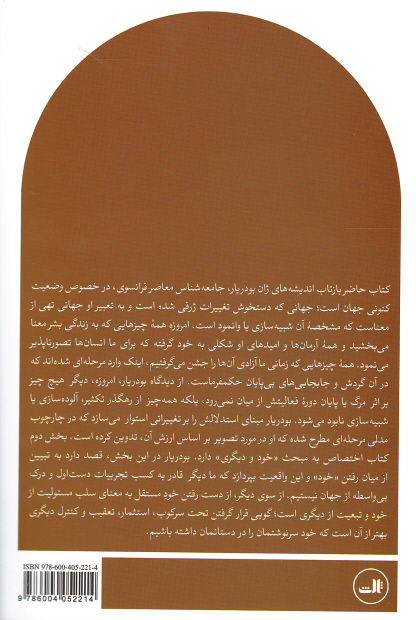 کتاب حاضر بازتاب اندیشه‌های ژان بودریار، جامعه‌شناس معاصر فرانسوی، در خصوص وضعیت
کنونی جهان است؛ جهانی که دستخوش تغییرات ژرفی شده است و به تعبیر او جهانی تهی از
معناست که مشخصهٔ آن شبیه‌سازی یا وانمود است. امروزه همهٔ چیزهایی که به زندگی بشر معنا
می‌بخشید و همهٔ آرمان‌ها و امیدهای او شکلی به خود گرفته که برای ما انسان‌ها تصورناپذیر
می‌نمود. همهٔ چیزهایی که زمانی ما آزادی آن‌ها را جشن می‌گرفتیم، اینک وارد مرحله‌ای شده‌اند که
در آن گردش و جابجایی‌های بی‌پایان حکمفرماست. از دیدگاه بودریار، امروزه، دیگر هیچ چیز
بر اثر مرگ یا پایان دورهٔ فعالیتش از میان نمی‌رود، بلکه همه‌چیز از رهگذر تکثیر، آلوده‌سازی یا
شبیه‌سازی نابود می‌شود. بودریار مبنای استدلالش را بر تغییراتی استوار می‌سازد که در چارچوب
مدلی مرحله‌ای مطرح شده که او در مورد تصویر بر اساس ارزش آن، تدوین کرده است. بخش دوم
کتاب اختصاص به مبحث «خود و دیگری» دارد. بودریار در این بخش، قصد دارد به تبیین
از میان رفتن «خود» و این واقعیت بپردازد که ما دیگر قادر به کسب تجربیات دست‌اول و درک
بی‌واسطه از جهان نیستیم. از سوی دیگر، از دست رفتن خود مستقل به معنای سلب مسئولیت از
خود و تبعیت از دیگری است؛ گویی قرار گرفتن تحت سرکوب، استثمار، تعقیب و کنترل دیگری
بهتر از آن است که خود سرنوشتمان را در دستانمان داشته باشیم.
ISBN 978-600-405-221-4
9 786004 052214
ثالث